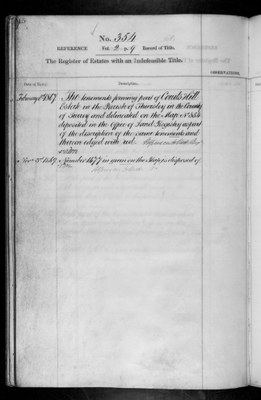 No. 354
REFERENCE Vol. 2 p 9 Record of Title.
The Register of Estates with an Indefeasible Title.
OBSERVATIONS.
Date of Entry. Description.
February 1867 The tenements forming part of Combe Hill
Estate in the Parish of Thursley in the County
of Surrey and delineated on the Map No 354
deposited in the Office of Land Registry as part
of the description of the same tenements and
thereon edged with red.
Nov 1869 Number 1477 in green on the Map disposed of